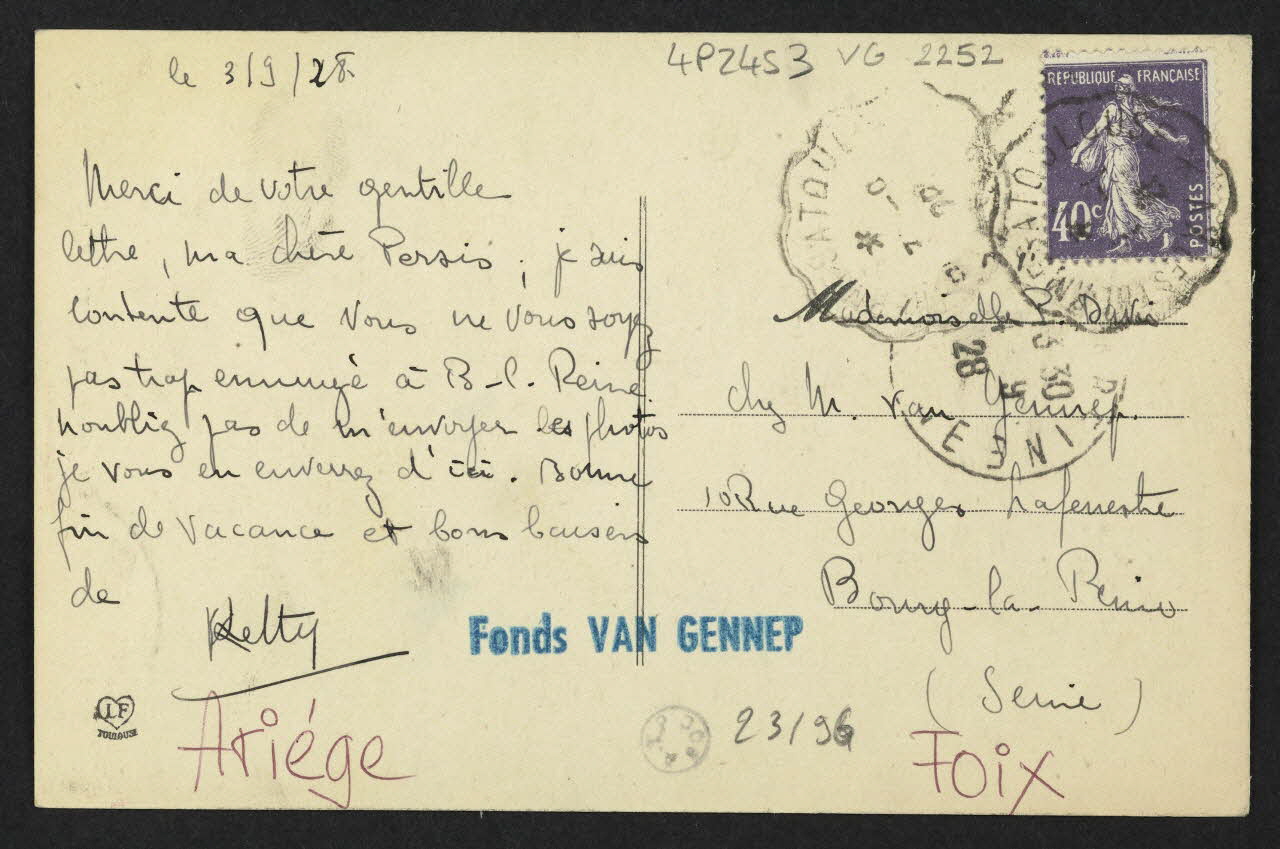 le 3/9/28.
4PZ4S3 VG 2252
REPUBLIQUE FRANÇAISE
40c
POSTES
Merci de votre gentille
lettre, ma chère Persis, je suis
contente que vous ne vous soyez
pas trop ennuyé à B-l-Reine
n'oubliez pas de m'envoyer les photos
je vous en enverrez d'ici. Bonne
fin de vacance et bons baisers
de
Ketty
Mademoiselle P.
chez M. van Gennep.
10 Rue Georges Lafenestre
Bourg-la-Reine
(Seine)
28
3 30
Fonds VAN GENNEP
LF
TOULOUSE
Ariége
23/96
Foix